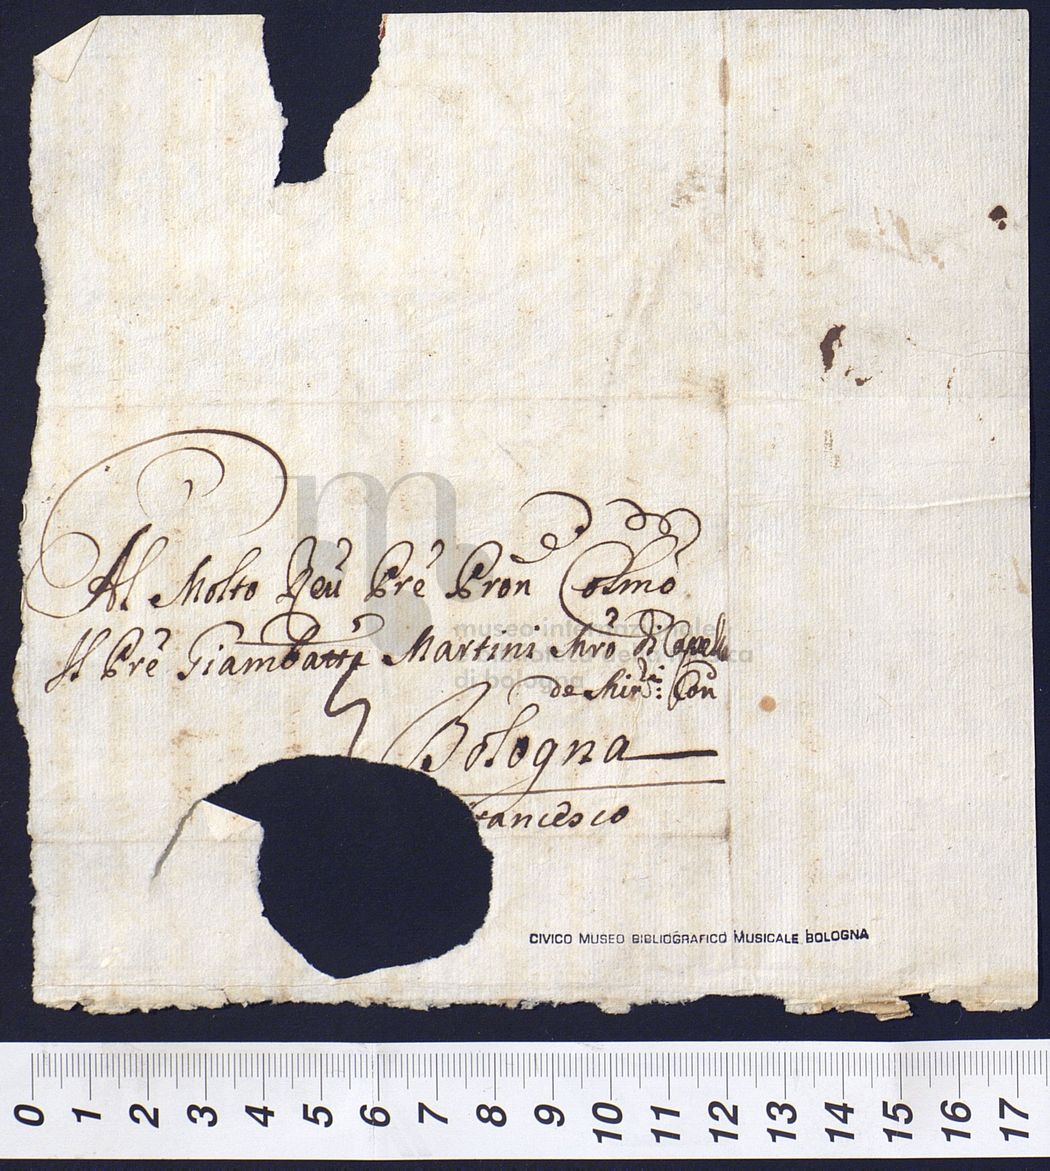 Al Molto Reu Pre Pron Colmo
Il Pre Giambatta Martini Mro di Capella
de Min:ri Con
Bologna
rancesco
museo internazionale
di bologna
CIVICO MUSEO BIBLIOGRAFICO MUSICALE BOLOGNA
0 1 2 3 4 5 6 7 8 9 10 11 12 13 14 15 16 17